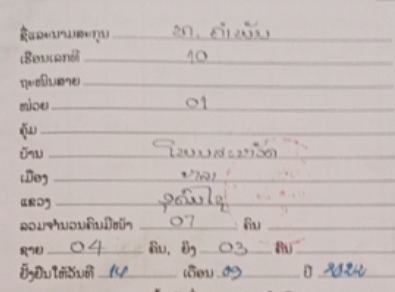 ຊື່ແລະນາມສະກຸນ ທ. ຄຳພັນ
ເຮືອນເລກທີ 10
ຖະໜົນສາຍ
ໜ່ວຍ 01
ຄຸ້ມ
ບ້ານ
ເມືອງ ຫລາ
ແຂວງ ອຸດົມໄຊ
ລວມຈຳນວນຄົນມີໜ້າ 07 ຄົນ
ຊາຍ 04 ຄົນ, ຍິງ 03 ຄົນ
ຢັ້ງຢືນໃຫ້ວັນທີ 14 ເດືອນ 09 ປີ 2024